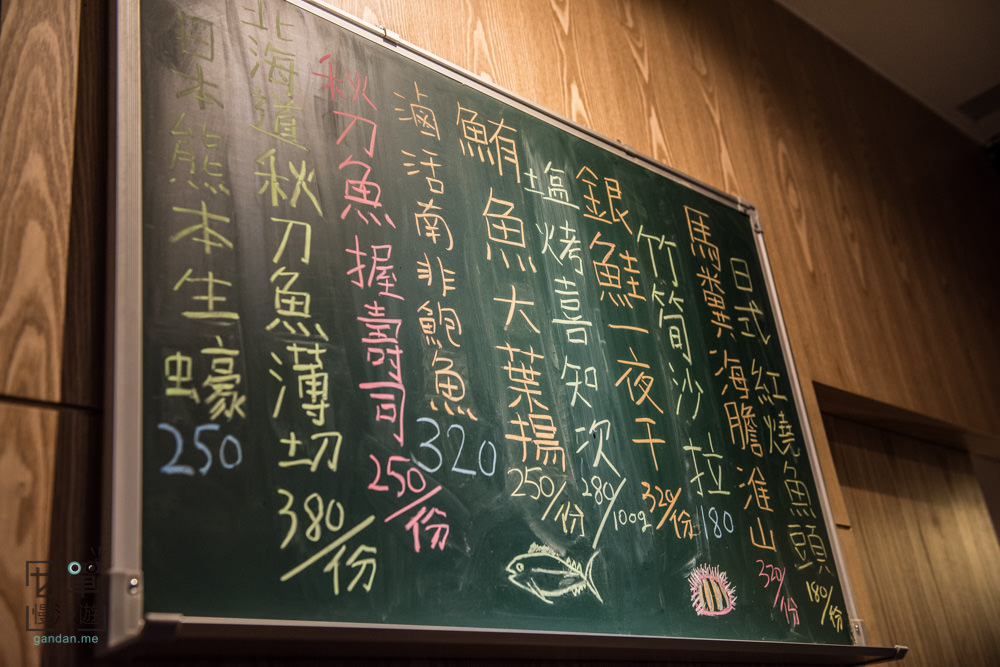 日式紅燒魚頭 180/份
馬糞海膽淮山 320/份
竹筒沙拉 180
銀鮭一夜干 320/份
塩烤喜知次 280/100g
鮪魚大葉揚 250/份
滷活南非鮑魚 320
秋刀魚握壽司 250/份
北海道秋刀魚薄切 380/份
日本熊本生蠔 250
gandan.me